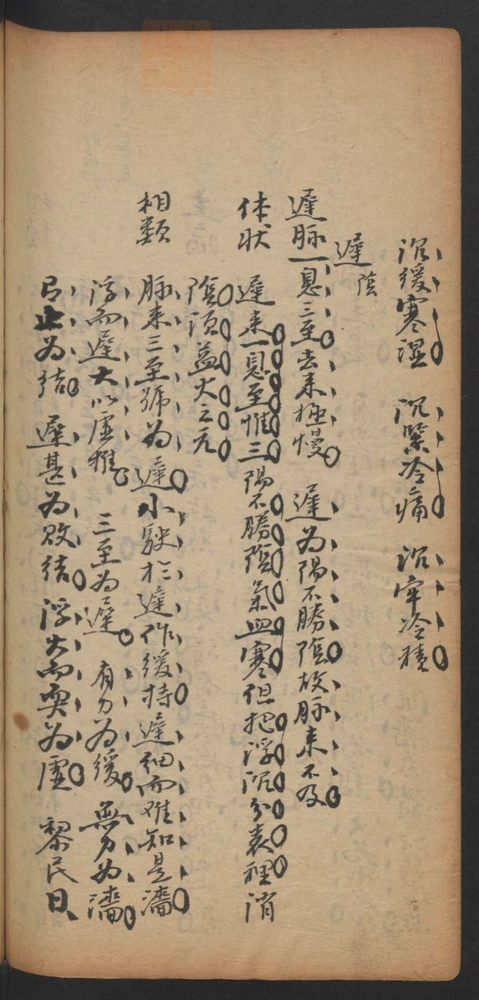 沉緩寒湿 沉緊冷痛 沉牢冷積
遲 陰
遲脉一息三至去来極慢 遲为陽不勝陰故脉来不及
体状 遲来一息至惟三陽不勝陰氣血寒但把浮沉分表裡消
陰須益火之元
相類 脉来三至號为遲小駛於遲作緩持遲細而难知是濇
浮而遲大以虚推 三至为遲 有力为緩 無力为濇
有止为結 遲甚为敗結 浮大而耎为虚 黎民曰